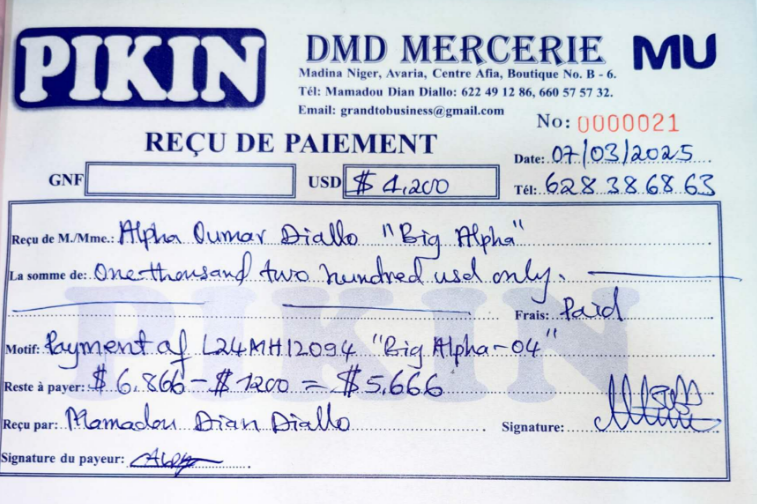 PIKIN
DMD MERCERIE
MU
Madina Niger, Avaria, Centre Afia, Boutique No. B - 6.
Tél: Mamadou Dian Diallo: 622 49 12 86, 660 57 57 32.
Email: grandtobusiness@gmail.com
No: 0000021
REÇU DE PAIEMENT
Date: 07/03/2025
GNF
USD $ 4,200
Tél: 628 38 68 63
Reçu de M./Mme.: Alpha Oumar Diallo "Big Alpha"
La somme de: One thousand two hundred usd only.
Frais: Paid
PIKIN
Motif: Payment of L24MH12094 "Big Alpha-04"
Reste à payer: $ 6,866 - $ 1200 = $5,666
Reçu par: Mamadou Dian Diallo
Signature:
Signature du payeur: